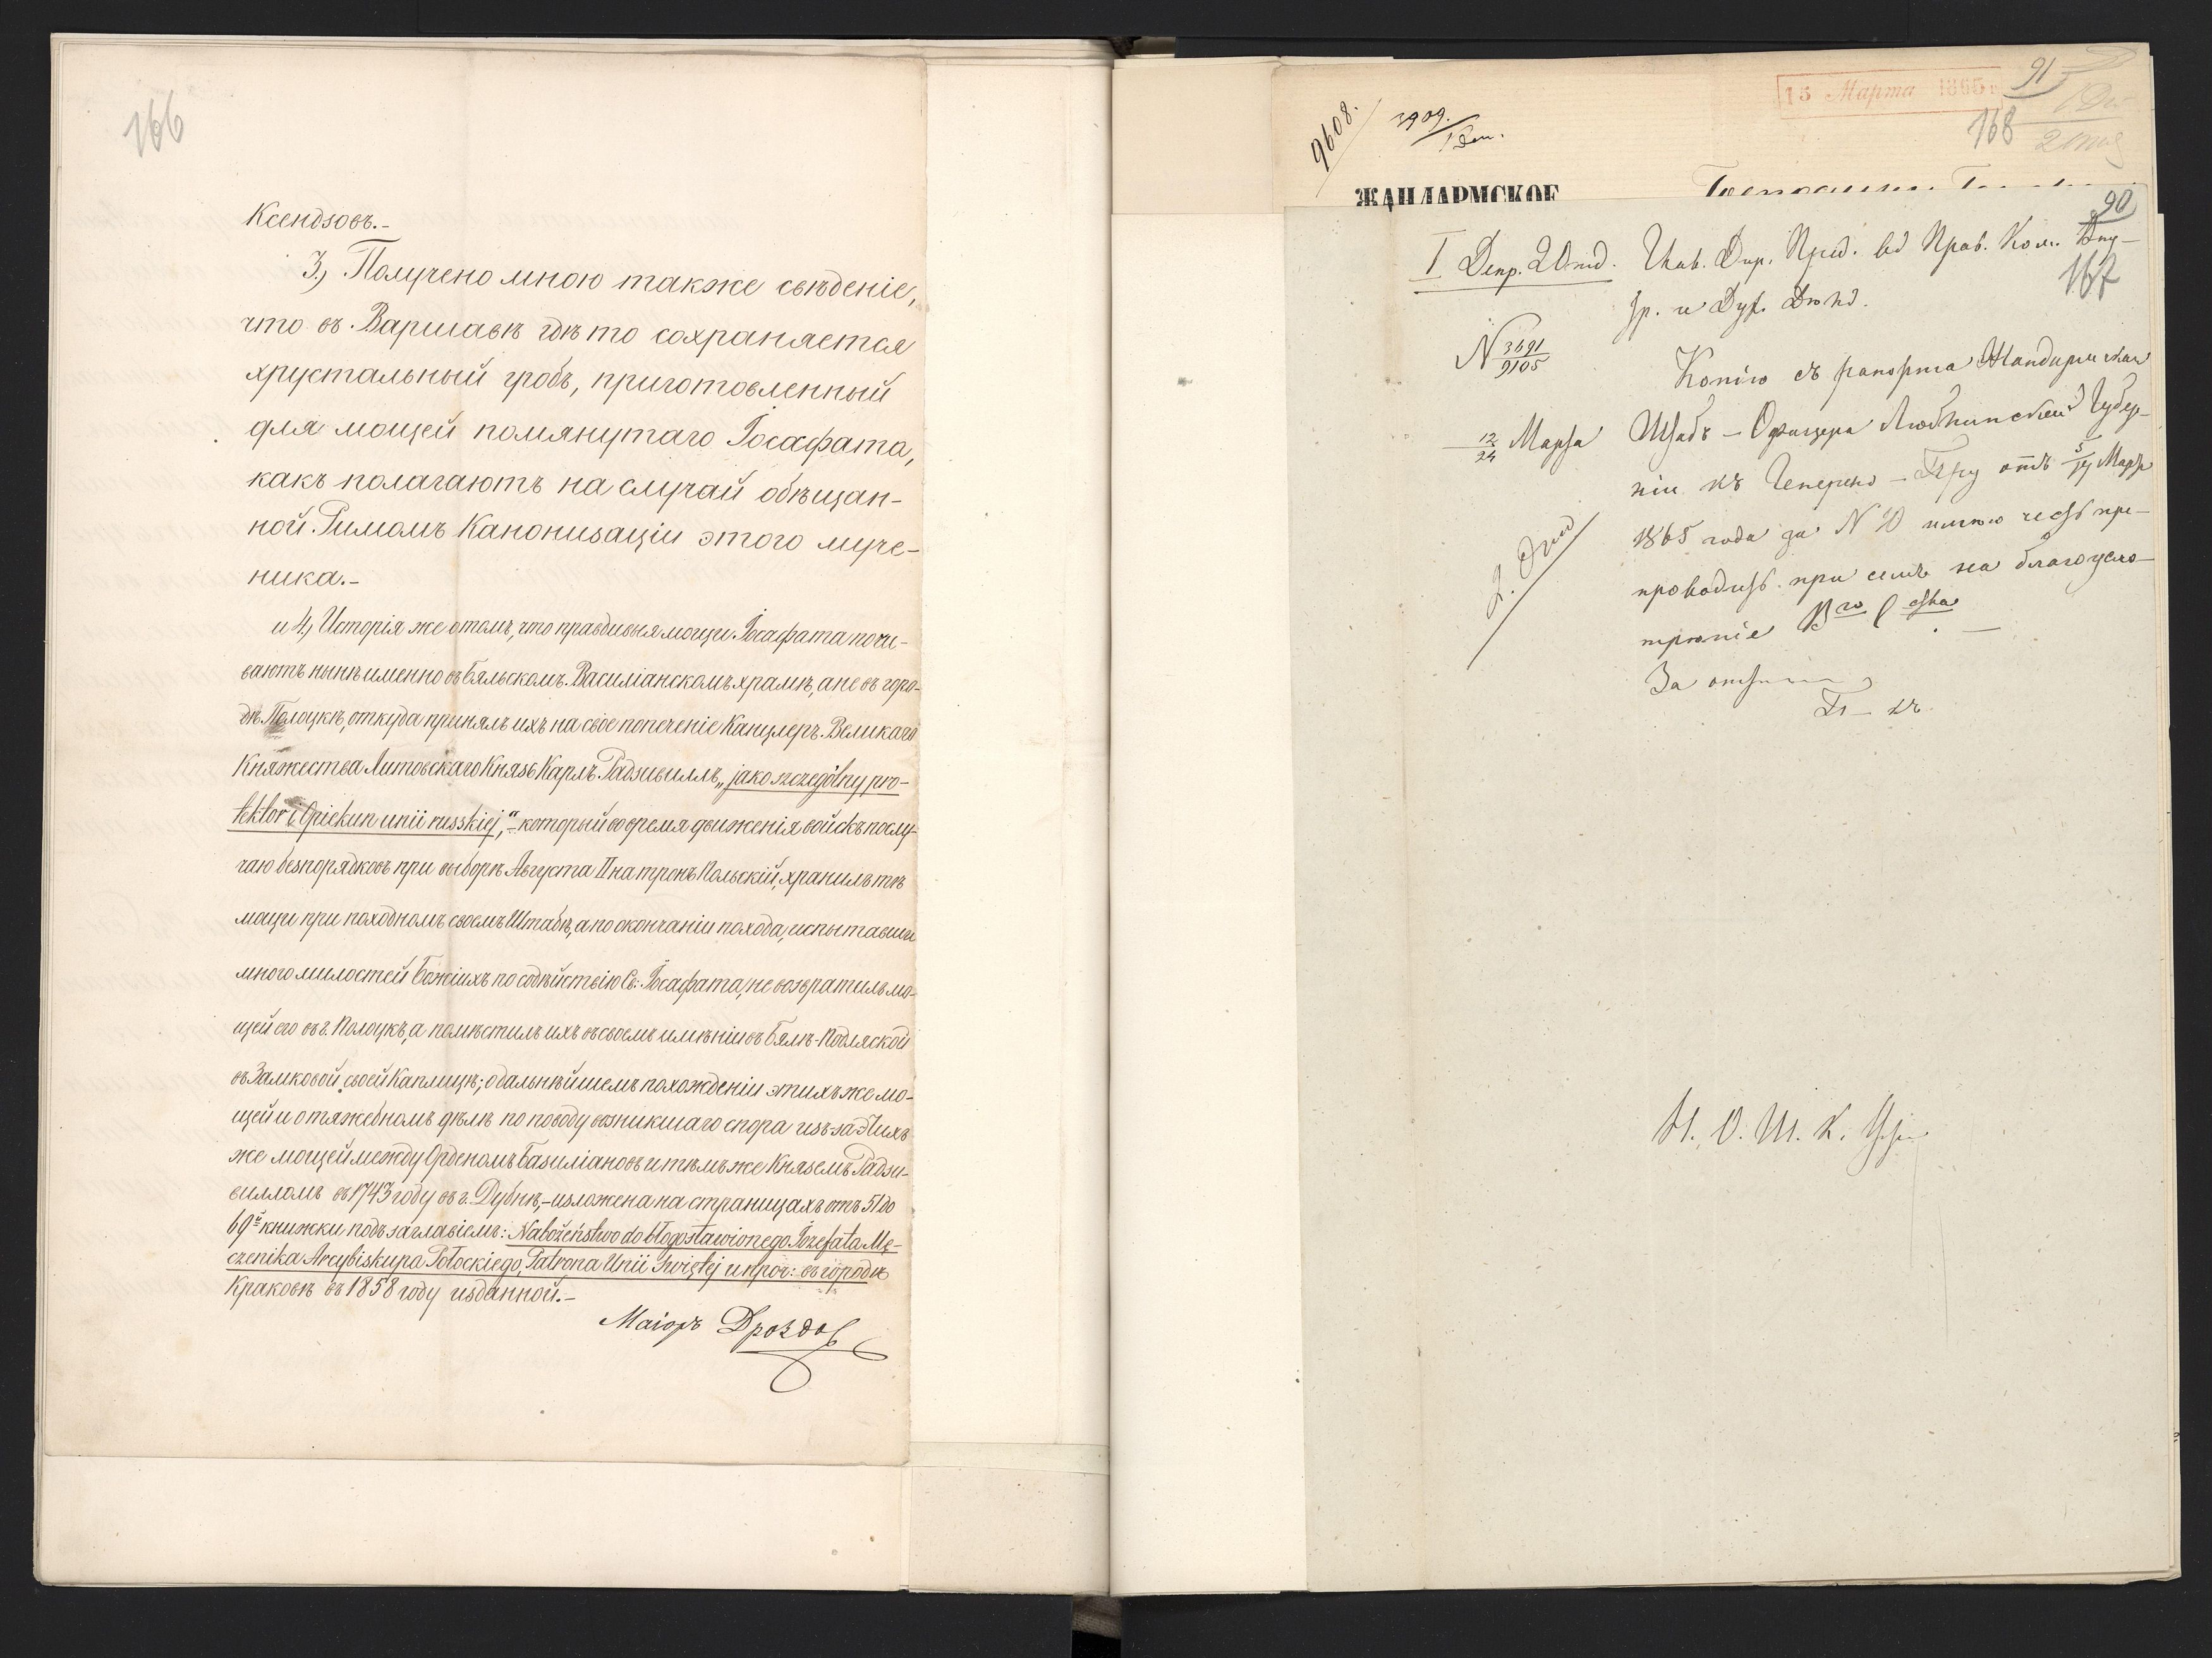 166
Ксендзовъ.-
3., Получено мною также свѣденіе,
что въ Варшавѣ гдѣ то сохраняется
хрустальный гробъ, приготовленный
для мощей помянутаго Іосафата,
какъ полагаютъ на случай обѣщан-
ной Римомъ Канонизаціи этого муче-
ника.-
и 4, Исторія же о томъ, что правдивыя мощи Іосафата почи-
ваютъ нынѣ именно въ Бяльскомъ Василіанскомъ храмѣ, а не въ горо-
дѣ Полоцкѣ, откуда принялъ ихъ на свое попеченіе Канцлеръ Великаго
Княжества Литовскаго Князь Карлъ Радзивиллъ, „jako szczególny pro-
tektor i Opiekun unii russkiej,“- который во время движенія войскъ по слу-
чаю безпорядковъ при выборѣ Августа II на тронъ Польскій, хранилъ тѣ
мощи при походномъ своемъ Штабѣ, а по окончаніи похода, испытавши
много милостей Божіихъ по содѣйствію Св: Іосафата, не возвратилъ мо-
щей его въ г. Полоцкъ, а помѣстилъ ихъ въ своемъ имѣніи въ Бялѣ-Подляской
въ Замковой своей Каплицѣ; о дальнѣйшемъ похожденіи этихъ же мо-
щей и о тяжебномъ дѣлѣ по поводу возникшаго спора изъ за тѣхъ
же мощей между Орденомъ Базиліановъ и тѣмъ же Княземъ Радзи-
вилломъ въ 1743 году въ г. Дубнѣ,- изложена на страницахъ отъ 51 до
69й книжки подъ заглавіемъ: Nabożeństwo do błogosławionego Józefata Mę-
czenika Arcybiskupa Połockiego, Patrona Unii Świętej и проч: въ городѣ
Краковѣ въ 1858 году изданной.-
Маіоръ Дроздов
15 Марта 1865 г
91
9608.
3909.
168
ЖАНДАРМСКОЕ
90
I Деп. 2 Отд. Глав. Дир. Пред. въ Прав. Ком. Вну-
167
тр. и Дух. Дѣлъ.
N 3691/9105
Копію съ рапорта Жандармскаго
12/24 Марта Штабъ-Офицера Люблинской Губер-
ніи къ Генералъ- отъ 5/17 Марта
1865 года за N 10 имѣю честь пре-
2. Отд
проводить при семъ на благоусмо-
трѣніе Вго С ства
За
Н. О. Ш. К.